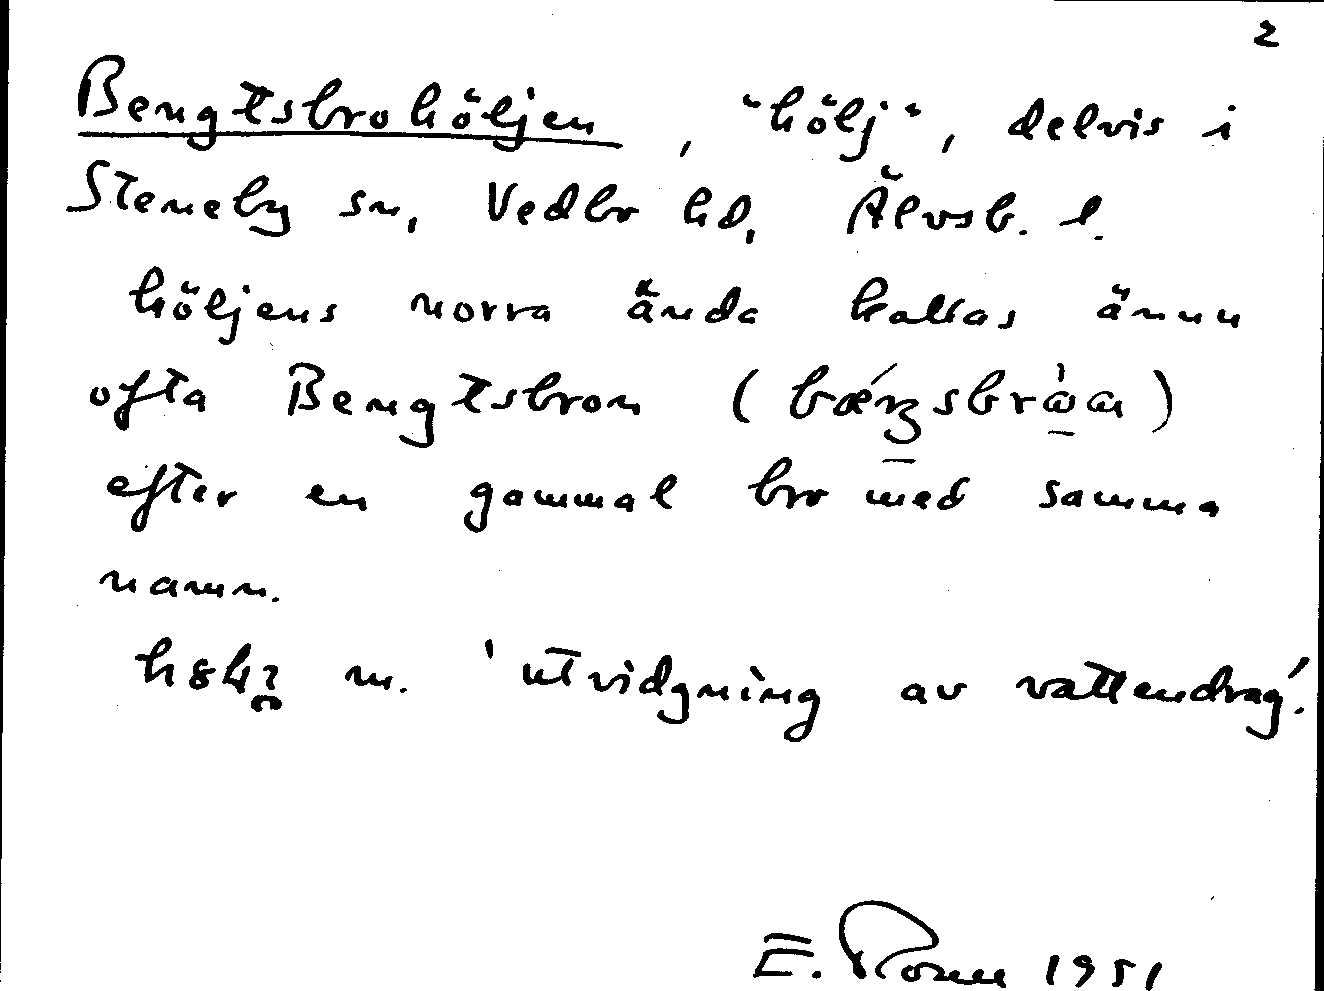 2
Bengtsbrohöljen, "hölj", delvis i
Steneby sn, Vedbo hd, Älvsb. l.
höljens norra ända kallas ännu
ofta Bengtsbron
efter en gammal bro med samma
namn.
m. 'utvidgning av vattendrag'.
E. 1951